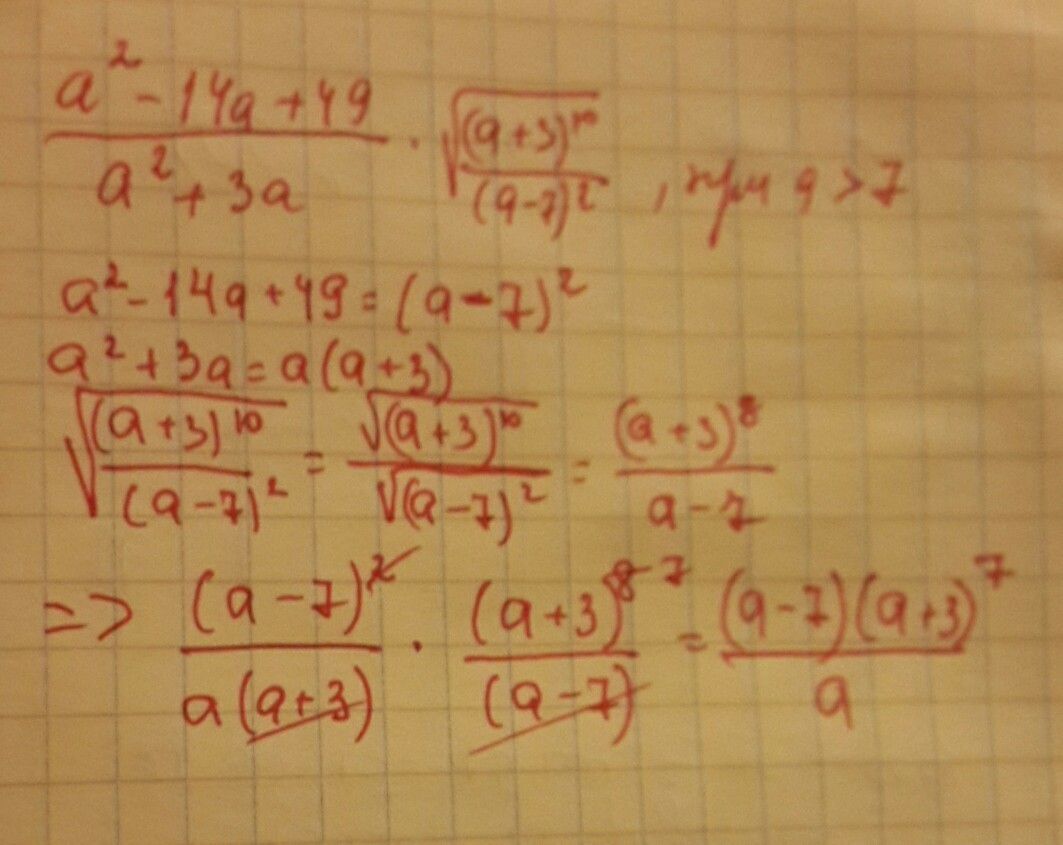 \frac{a^2 - 14a + 49}{a^2 + 3a} \cdot \sqrt{\frac{(a+3)^{10}}{(a-7)^2}}, при a > 7
a^2 - 14a + 49 = (a - 7)^2
a^2 + 3a = a(a+3)
\sqrt{\frac{(a+3)^{10}}{(a-7)^2}} = \frac{\sqrt{(a+3)^{10}}}{\sqrt{(a-7)^2}} = \frac{(a+3)^8}{a-7}
=> \frac{(a-7)^{\cancel{2}}}{a\cancel{(a+3)}} \cdot \frac{(a+3)^{\cancel{8} 7}}{\cancel{(a-7)}} = \frac{(a-7)(a+3)^7}{a}